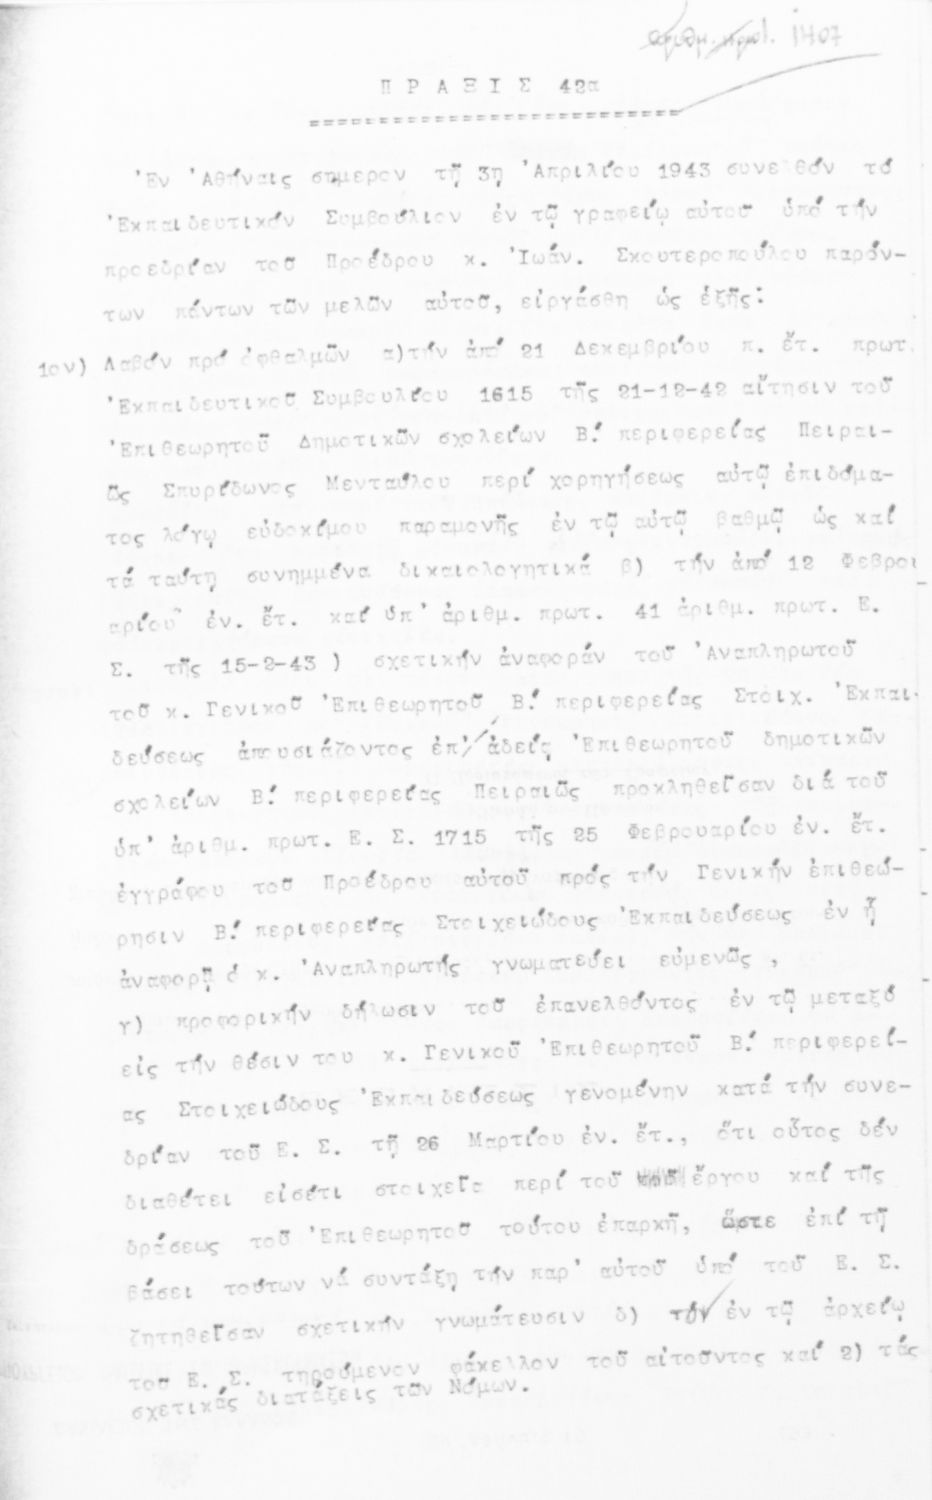 ἀριθμ. πρωτ. 1407
Π Ρ Α Ξ Ι Σ 42α
Ἐν Ἀθήναις σήμερον τῇ 3ῃ Ἀπριλίου 1943 συνελθόν τό
Ἐκπαιδευτικόν Συμβούλιον ἐν τῷ γραφείῳ αὐτοῦ ὑπό τήν
προεδρίαν τοῦ Προέδρου κ. Ἰωάν. Σκουτεροπούλου παρόν-
των πάντων τῶν μελῶν αὐτοῦ, εἰργάσθη ὡς ἑξῆς:
1ον) Λαβόν πρό ὀφθαλμῶν α)τήν ἀπό 21 Δεκεμβρίου π. ἔτ. πρωτ.
Ἐκπαιδευτικοῦ Συμβουλίου 1615 τῆς 21-12-42 αἴτησιν τοῦ
Ἐπιθεωρητοῦ Δημοτικῶν σχολείων Β.' περιφερείας Πειραι-
ῶς Σπυρίδωνος Μενταύλου περί χορηγήσεως αὐτῷ ἐπιδόμα-
τος λόγῳ εὐδοκίμου παραμονῆς ἐν τῷ αὐτῷ βαθμῷ ὡς καί
τά ταύτῃ συνημμένα δικαιολογητικά β) τήν ἀπό 12 Φεβρου
αρίου ἐν. ἔτ. καί ὑπ' ἀριθμ. πρωτ. 41 ἀριθμ. πρωτ. Ε.
Σ. τῆς 15-2-43 ) σχετικήν ἀναφοράν τοῦ Ἀναπληρωτοῦ
τοῦ κ. Γενικοῦ Ἐπιθεωρητοῦ Β.' περιφερείας Στοιχ. Ἐκπαι-
δεύσεως ἀπουσιάζοντος ἐπ' ἀδείᾳ Ἐπιθεωρητοῦ δημοτικῶν
σχολείων Β.' περιφερείας Πειραιῶς προκληθεῖσαν διά τοῦ
ὑπ' ἀριθμ. πρωτ. Ε. Σ. 1715 τῆς 25 Φεβρουαρίου ἐν. ἔτ.
ἐγγράφου τοῦ Προέδρου αὐτοῦ πρός τήν Γενικήν ἐπιθεώ-
ρησιν Β.' περιφερείας Στοιχειώδους Ἐκπαιδεύσεως ἐν ᾗ
ἀναφορᾷ ὁ κ. Ἀναπληρωτής γνωματεύει εὐμενῶς ,
γ) προφορικήν δήλωσιν τοῦ ἐπανελθόντος ἐν τῷ μεταξύ
εἰς τήν θέσιν του κ. Γενικοῦ Ἐπιθεωρητοῦ Β.' περιφερεί-
ας Στοιχειώδους Ἐκπαιδεύσεως γενομένην κατά τήν συνε-
δρίαν τοῦ Ε. Σ. τῇ 26 Μαρτίου ἐν. ἔτ., ὅτι οὗτος δέν
διαθέτει εἰσέτι στοιχεῖα περί τοῦ ἔργου καί τῆς
δράσεως τοῦ Ἐπιθεωρητοῦ τούτου ἐπαρκῆ, ὥστε ἐπί τῇ
βάσει τούτων νά συντάξῃ τήν παρ' αὐτοῦ ὑπό τοῦ Ε. Σ.
ζητηθεῖσαν σχετικήν γνωμάτευσιν δ) τόν ἐν τῷ ἀρχείῳ
τοῦ Ε. Σ. τηρούμενον φάκελλον τοῦ αἰτοῦντος καί 2) τάς
σχετικάς διατάξεις τῶν Νόμων.